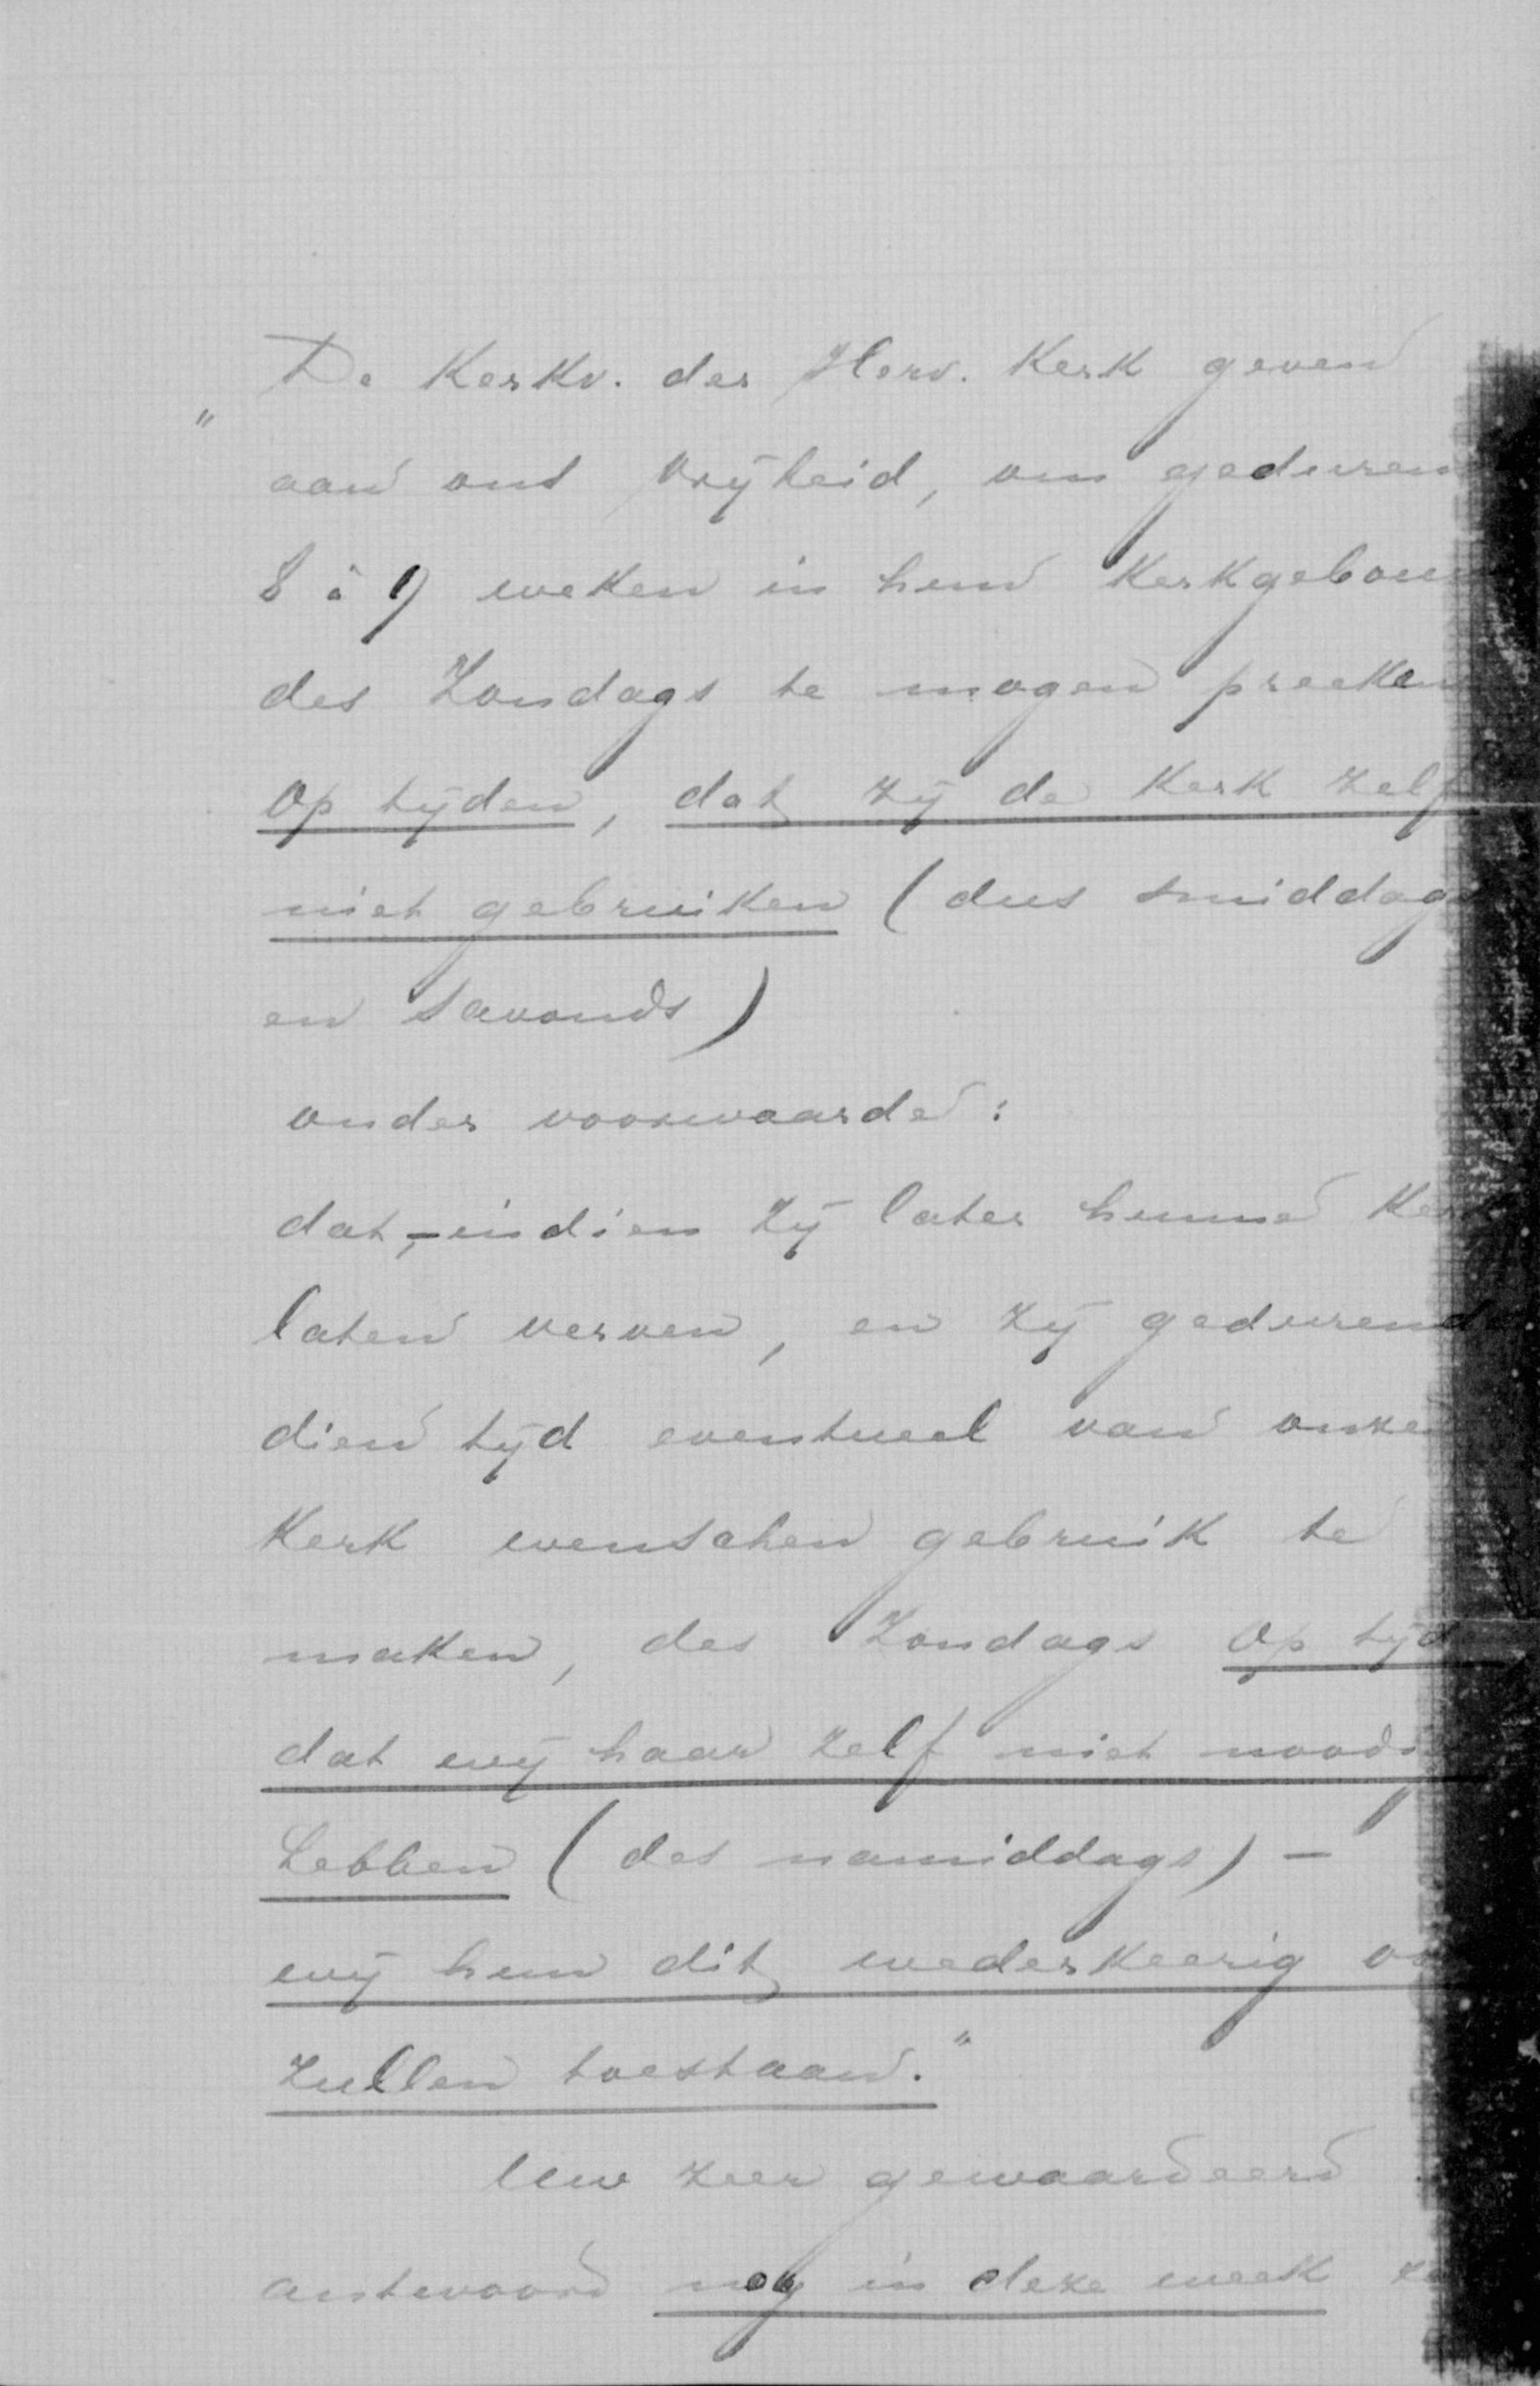 „De Kerkv. der Herv. Kerk geven
aan ons vrijheid, om geduren
8 à 9 weken in hun Kerkgebouw
des Zondags te mogen preeken
op tijden, dat zij de Kerk zelf
niet gebruiken (dus smiddags
en savonds)
onder voorwaarde:
dat, - indien zij later hunne Kerk
laten verven, en zij gedurende
dien tijd eventueel van onze
Kerk wenschen gebruik te
maken, des Zondags op tijd
dat wij haar zelf niet noodig
hebben (des namiddags) -
wij hun dit wederkeerig
zullen toestaan."
Uw zeer gewaardeerd
antwoord nog in deze week